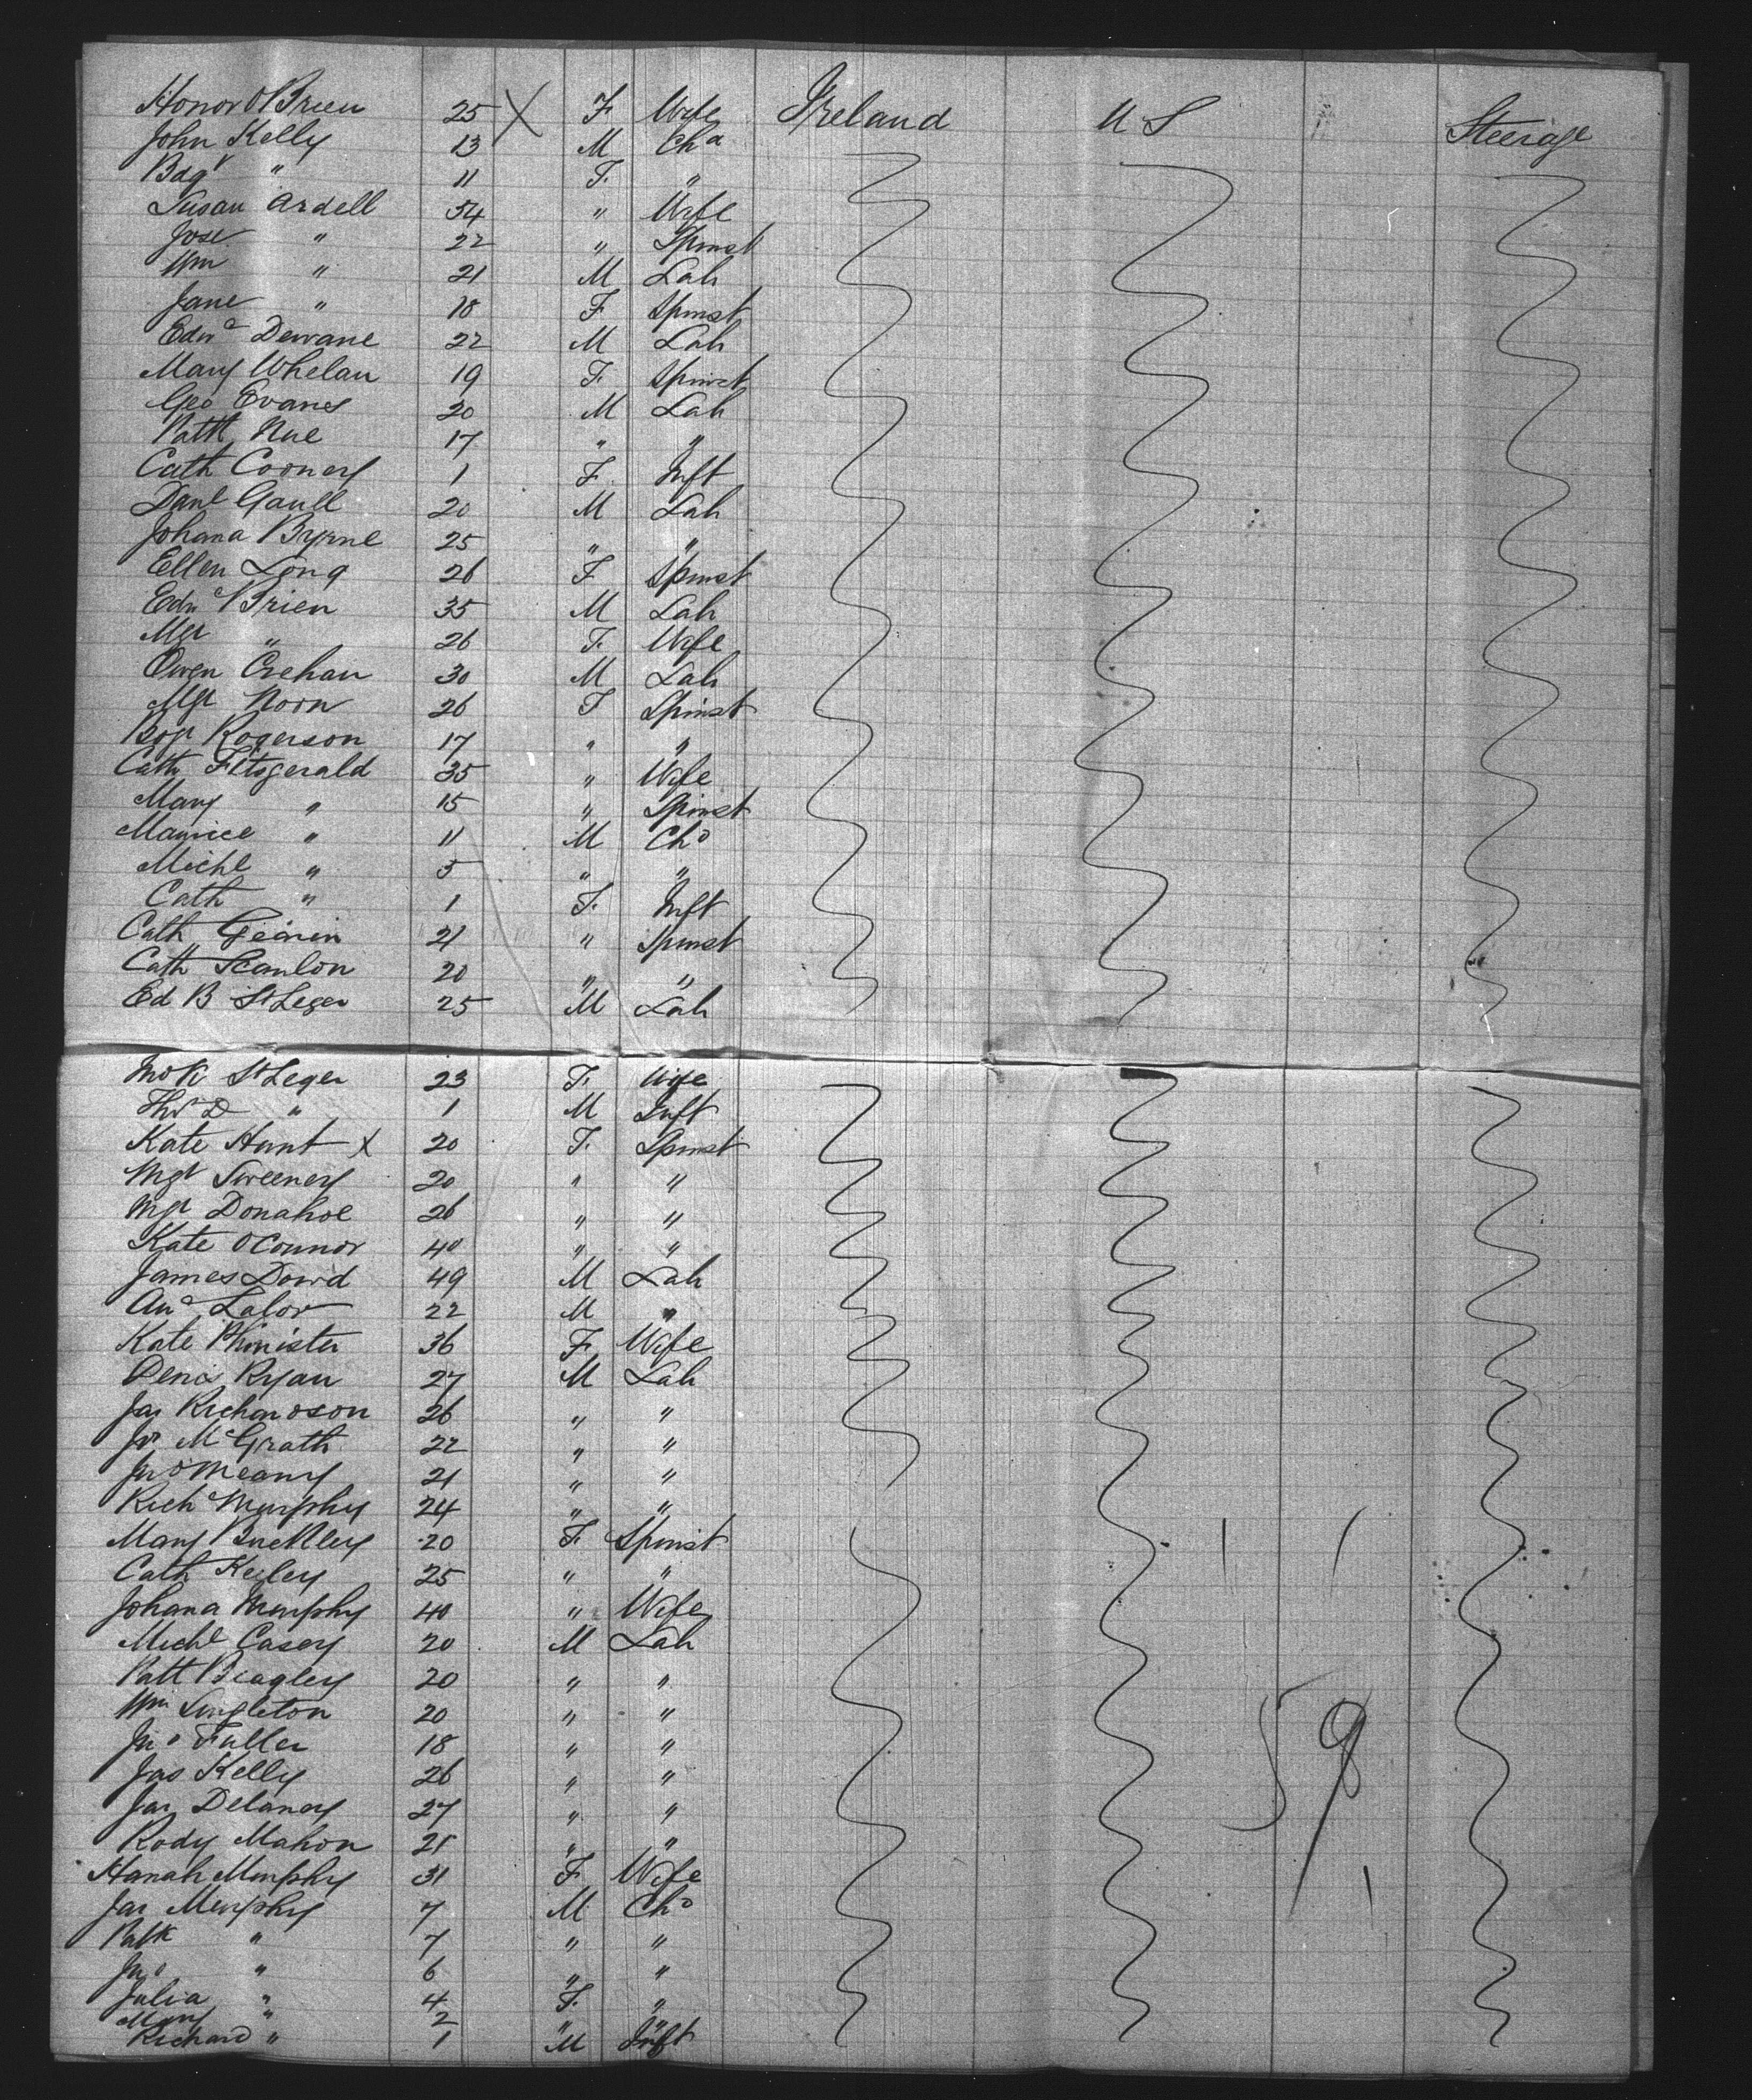 Honor O'Brien 25 X F Wife Ireland U S Steerage
John Kelly 13 M Chd
Bdgt " 11 F. "
Susan Ardell 54 " Wife
Jose " 22 " Spinst
Wm " 21 M Lab
Jane " 18 F Spinst
Edwd Dewane 22 M Lab
Mary Whelan 19 F. Spinst
Geo Evans 20 M Lab
Pattk Nue 17 " "
Cath Cooney 1 F. Inft
Danl Gaull 20 M Lab
Johana Byrne 25 " "
Ellen Long 26 F Spinst
Edw OBrien 35 M Lab
Mgt " 26 F. Wife
Owen Crehan 30 M Lab
Mgt Noon 26 F Spinst
Rogerson 17 " "
Cath Fitsgerald 35 " Wife
Mary " 15 " Spinst
Maurice " 11 M Chd
Michl " 5 " "
Cath " 1 F. Inft
Cath 21 " Spinst
Cath Scanlon 20 " "
Ed B St Leger 25 M Lab
St Leger 23 F. Wife
Ths D " 1 M Inft
Kate Hunt X 20 F. Spinst
Mgt Sweeney 20 " "
Mgt Donahoe 26 " "
Kate OConnor 40 " "
James Dowd 49 M Lab
Lalor 22 M "
Kate Phinister 36 F Wife
Denis Ryan 27 M Lab
Jas Richardson 26 " "
McGrath 22 " "
Jno Meany 21 " "
Richd Murphy 24 " "
Mary Buckley 20 F. Spinst
Cath Keiley 25 " "
Johana Murphy 40 " Wife
Michl Casey 20 M Lab
Patt Beagley 20 " "
Wm Singleton 20 " "
Jno Fuller 18 " "
Jas Kelly 26 " "
Jas Delaney 27 " "
Rody Mahon 21 " "
Hanah Murphy 31 F Wife
Jas Murphy 7 M Chd
Patk " 7 " "
Jno " 6 " "
Julia " 4 F. "
Mary " 2 " "
Richard " 1 M Inft
59